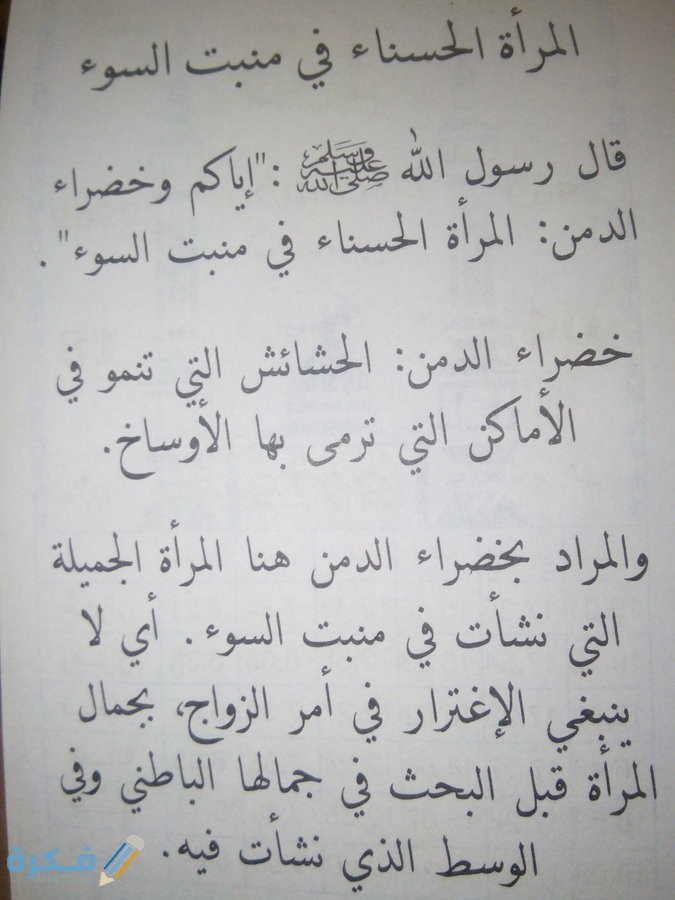 المرأة الحسناء في منبت السوء
قال رسول الله ﷺ :"إياكم وخضراء
الدمن: المرأة الحسناء في منبت السوء".
خضراء الدمن: الحشائش التي تنمو في
الأماكن التي ترمى بها الأوساخ.
والمراد بخضراء الدمن هنا المرأة الجميلة
التي نشأت في منبت السوء. أي لا
ينبغي الإغترار في أمر الزواج، بجمال
المرأة قبل البحث في جمالها الباطني وفي
الوسط الذي نشأت فيه.
فكرة